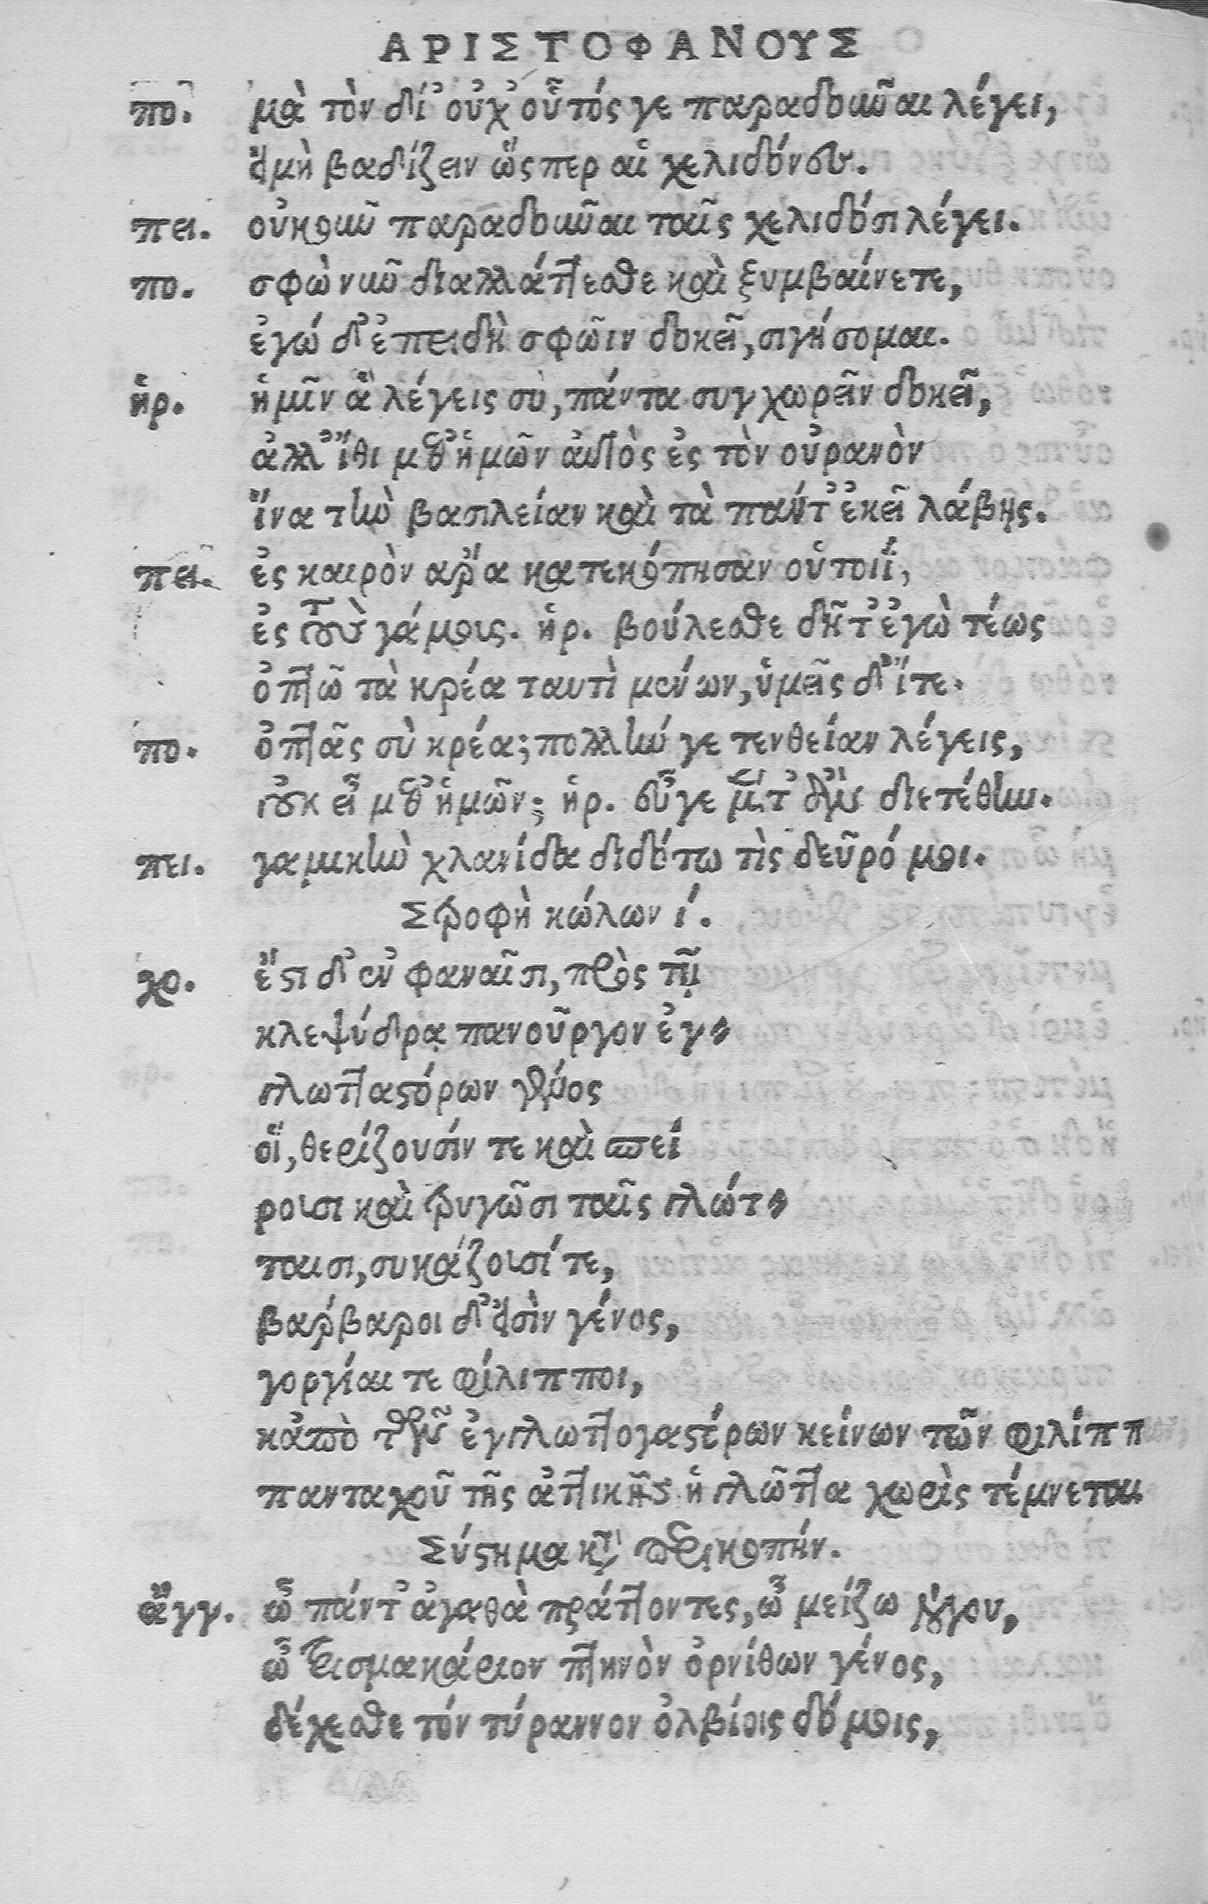 ΑΡΙΣΤΟΦΑΝΟΥΣ
πο. μὰ τὸν δί᾽ οὐχ᾽ οὗτός γε παραδοῦναι λέγει,
εἰμὴ βαδίζειν ὥς περ αἱ χελιδόνες.
πει. οὐκοῦν παραδοῦναι ταῖς χελιδόσι λέγει.
πο. σφὼ νῦν διαλλάττεσθε καὶ ξυμβαίνετε,
ἐγώ δ᾽ ἐπειδὴ σφῶιν δοκεῖ, σιγήσομαι.
ἡρ. ἡμῖν ἃ λέγεις σὺ, πάντα συγχωρεῖν δοκεῖ,
ἀλλ᾽ ἴθι μεθ᾽ ἡμῶν αὐτὸς ἐς τὸν οὐρανὸν
ἵνα τὴν βασιλείαν καὶ τὰ πάντ᾽ ἐκεῖ λάβῃς.
πει. ἐς καιρὸν ἄρα κατεκόπησαν οὑτοιί,
ἐς τοὺς γάμοις. ἡρ. βούλεσθε δῆτ᾽ ἐγὼ τέως
ὀπτῶ τὰ κρέα ταυτὶ μένων, ὑμεῖς δ᾽ ἴτε.
πο. ὀπτᾶς σὺ κρέα; πολλήν γε τενθείαν λέγεις,
οὐκ εἶ μεθ᾽ ἡμῶν; ἡρ. εὖγε μέντ᾽ ἂν διετέθην.
πει. γαμικὴν χλανίδα διδότω τὶς δεῦρό μοι.
Στροφὴ κώλων ί.
χο. ἔστι δ᾽ ἐν φαναῖσι, πρὸς τῇ
κλεψύδρᾳ πανοῦργον ἐγ-
γλωττογαστόρων γένος
οἳ, θερίζουσίν τε καὶ σπεί
ρουσι καὶ τρυγῶσι ταῖς γλώτ-
ταισι, συκάζουσί τε,
βάρβαροι δ᾽ εἰσὶν γένος,
γοργίαι τε φίλιπποι,
κἀπὸ τῶν ἐγγλωττογαστόρων κείνων τῶν φιλίππ
πανταχοῦ τῆς ἀττικῆς ἡ γλῶττα χωρὶς τέμνεται
Σύστημα κατὰ περικοπήν.
ἄγγ. ὦ πάντ᾽ ἀγαθὰ πράττοντες, ὦ μείζω λόγου,
ὦ τρισμακάριον πτηνὸν ὀρνίθων γένος,
δέχεσθε τόν τύραννον ὀλβίοις δόμοις,